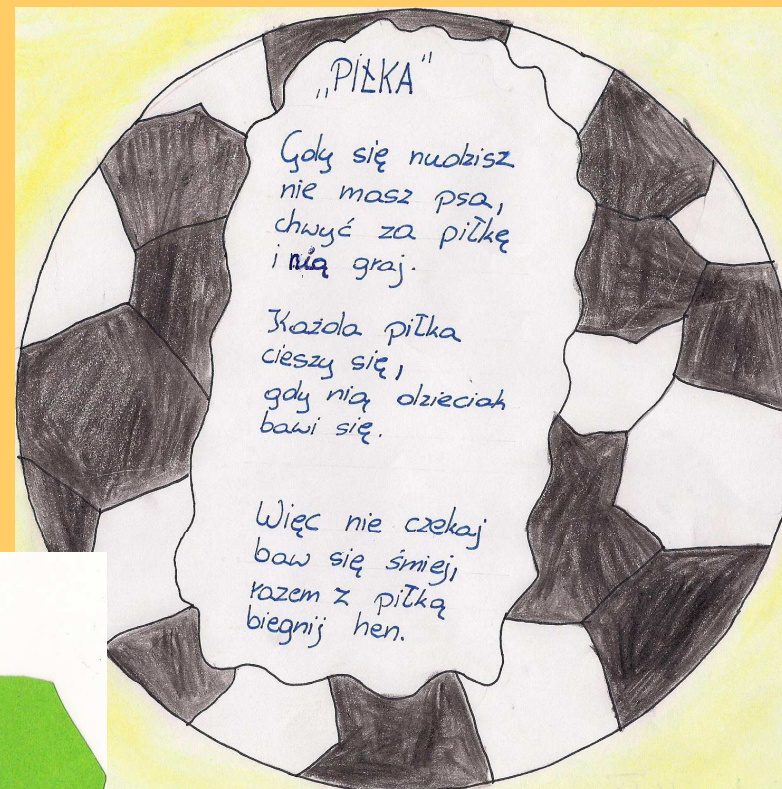 „PIŁKA"
Gdy się nudzisz
nie masz psa,
chwyć za piłkę
i nią graj.
Każda piłka
cieszy się,
gdy nią dzieciak
bawi się.
Więc nie czekaj
baw się śmiej,
razem z piłką
biegnij hen.